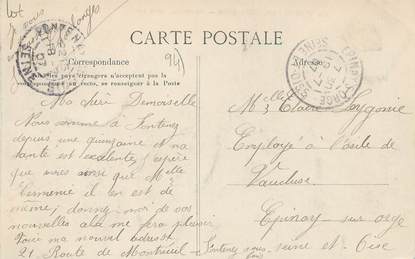 lot
CARTE POSTALE
Correspondance
Tous les pays étrangers n'acceptent pas la
correspondance au recto, se renseigner à la Poste
Adresse
94)
Ma chère Demoiselle
Nous somme a Fontenay
depuis une quinzaine et ma
santé est exelente j'espère
que vous ainsi que Melle
il en est de
même, donnez moi de vos
nouvelles cela me fera plaisir
Voici ma nouvel adresse
21 Route de Montreuil Fontenay sous
Melle Claire
Employé à l'asile de
Vaucluse
Epinay sur orge
seine et Oise
EPINAY-S-ORGE
SEINE-ET-OISE